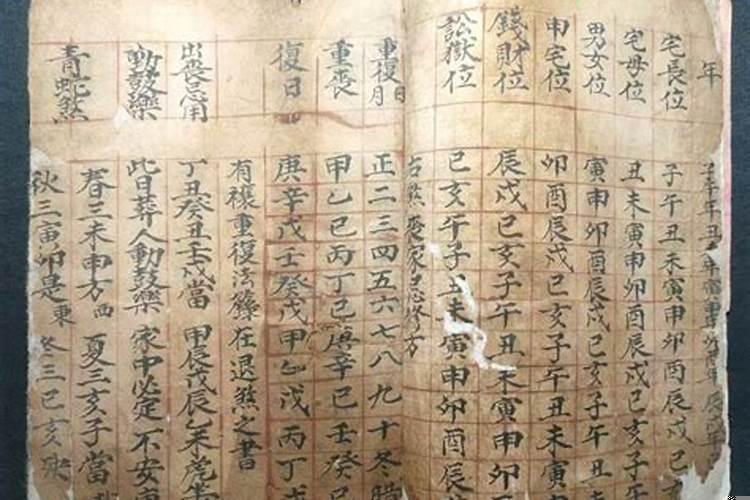 年 子午年丑未年寅申
宅長位 子午丑未寅申卯酉辰戌巳
宅母位 丑未寅申卯酉辰戌巳亥子午
男女位 寅申卯酉辰戌巳亥子午丑
申宅位 卯酉辰戌巳亥子午丑未寅
錢財位 辰戌巳亥子午丑未寅申卯
訟獄位 巳亥午子丑未寅申卯酉辰
占煞 喪家忌修方
重復日月 正二三四五六七八九十冬腊
重丧 甲乙巳丙丁巳庚辛巳壬癸巳
復日 庚辛戊壬癸戊甲乙戊丙丁
有禳重復法籙在退煞之書
出喪忌用 丁丑癸丑壬戌當 甲辰戊辰乙未
動鼓樂 此日葬人動鼓樂 家中必定不安
青蛇煞 春三未申方西 夏三亥子當
秋三寅卯是東 冬三巳亥